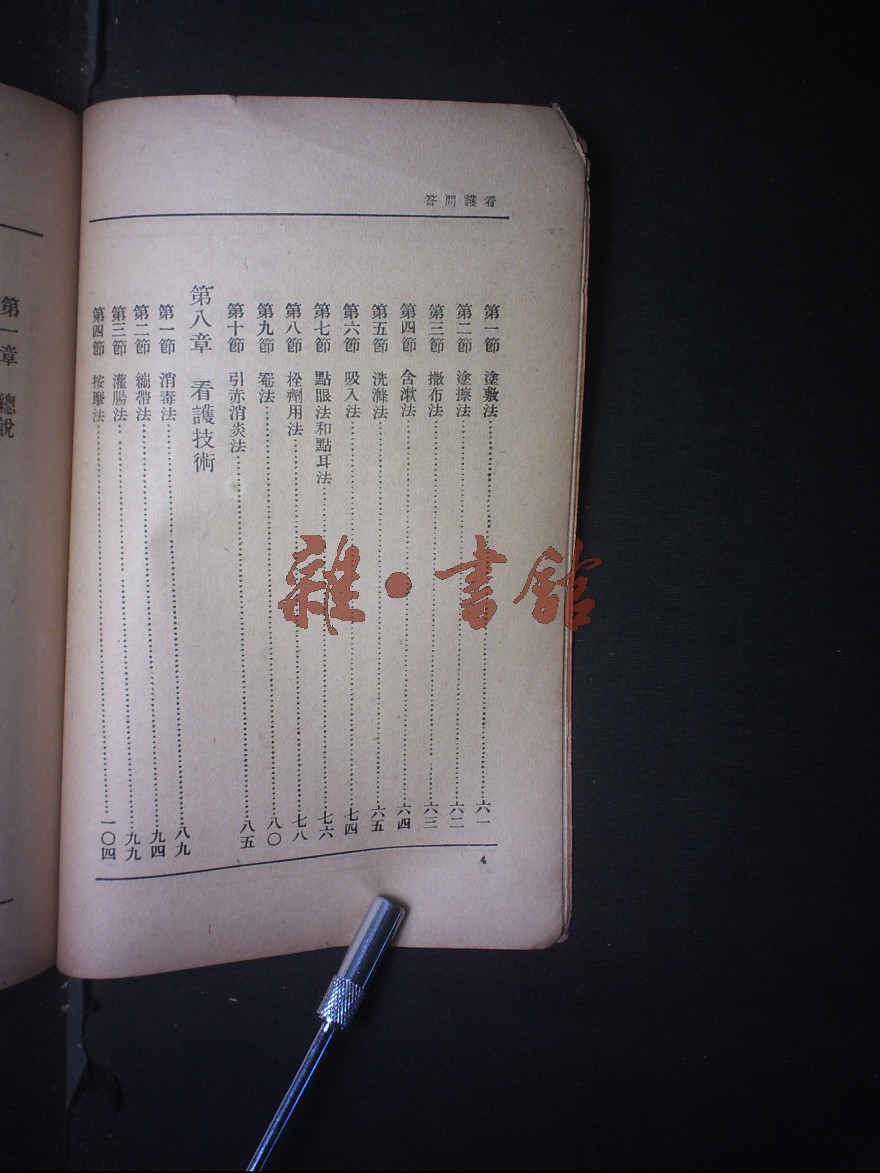 看護問答
第一節 塗敷法……六一
第二節 塗擦法……六二
第三節 撒布法……六三
第四節 含漱法……六四
第五節 洗滌法……六五
第六節 吸入法……七四
第七節 點眼法和點耳法……七六
第八節 栓劑用法……七八
第九節 罨法……八〇
第十節 引赤消炎法……八五
第八章 看護技術
第一節 消毒法……八九
第二節 繃帶法……九四
第三節 灌腸法……九九
第四節 按摩法……一〇四
4
第一章 總說
雜·書館